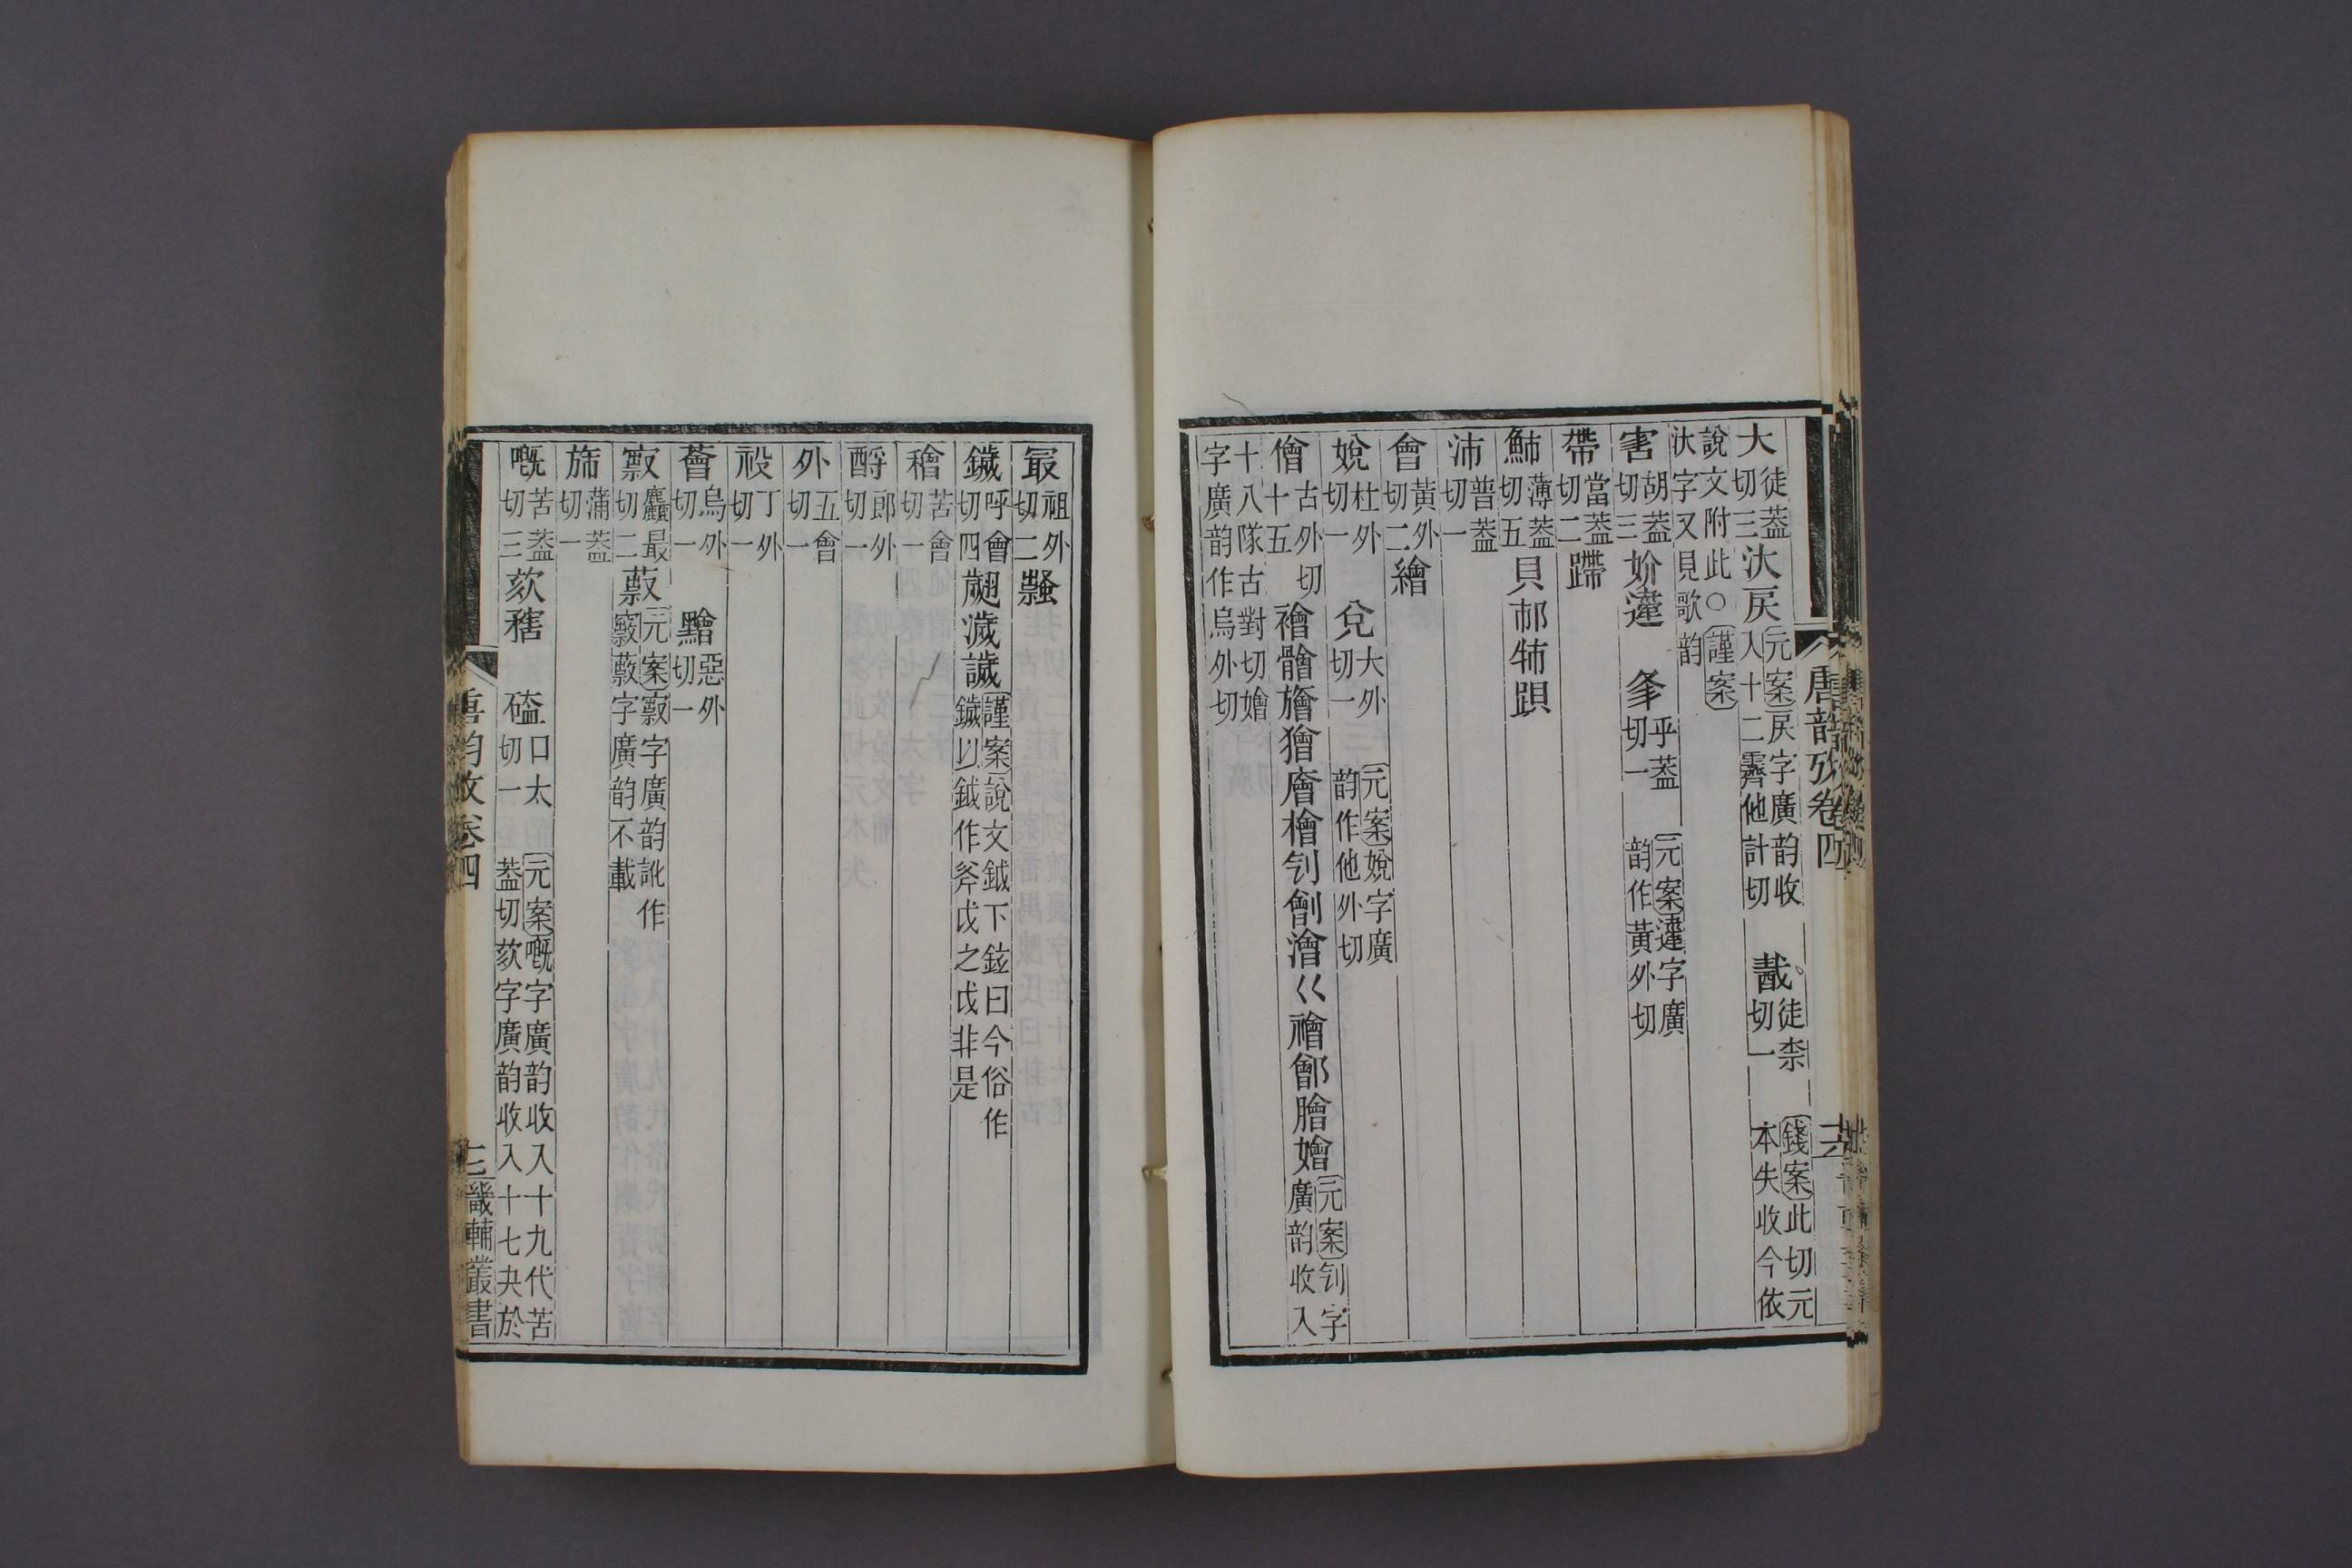 大徒葢切三汏戻元案戻字廣韵收入十二霽他計切 䨺徒柰切一 錢案此切元本失收今依
說文附此○謹案汏字又見歌韵
害胡葢切三妎𨗉 夆乎葢切一 元案𨗉字廣韵作黃外切
帶當葢切二蹛
鮄薄葢切五貝邶㸬跟
沛普葢切一
會黃外切二繪
娧杜外切一 兌大外切一 元案娧字廣韵作他外切
儈古外切十五襘䯤旝獪廥檜刏劊澮巜禬鄶膾嬒元案刏字廣韵收入
十八隊古對切嬒字廣韵作烏外切
唐韵攷卷四
冣祖外切二𥽿
鐬呼會切四翽濊䜋謹案說文鉞下鉉曰今俗作鐬以鉞作斧戉之戉非是
穭苦會切一
酹郎外切一
外五會切一
祋丁外切一
薈烏外切一 黵惡外切一
㝮麤最切二蔌元案㝮字廣韵訛作竅蔌字廣韵不載
旆蒲葢切一
嘅苦葢切三欬𥢶 磕口太切一 元案嘅字廣韵收入十九代苦葢切欬字廣韵收入十七夬於
唐韵攷卷四
畿輔叢書